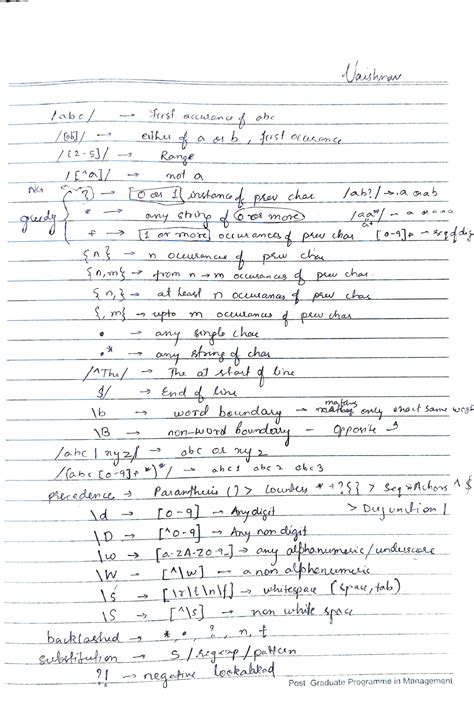 Vaishnav
/abc/ → First occurance of abc
/[ab]/ → either of a or b, first occurance
/[2-5]/ → Range
/[^a]/ → not a
?) → [0 or 1] instance of prev char /ab?/ → a or ab
greedy * → any string of (0 or more) /aa*/ → a or aaa
+ → [1 or more] occurances of prev char [0-9]+ → seq of dig
{n} → n occurance of prev char
{n,m} → from n → m occurances of prev char
{n,} → at least n occurances of prev char
{,m} → upto m occurances of prev char
• → any single char
.* → any string of char
/^The/ → The at start of line
$/ → End of line
\b → word boundary → matches only exact same
\B → non-word boundary → Opposite
/abc|xyz/ → abc or xyz
/(abc[0-9]+*)*/ → abc1 abc2 abc3
precedence → Paranthesis () > Counters * + ? {} > Seq ^ $
> Disjunction |
\d → [0-9] → Any digit
\D → [^0-9] → Any non digit
\w → [a-zA-Z0-9_] → any alphanumeric/underscore
\W → [^\w] → a non alphanumeric
\s → whitespace (space, tab)
\S → [^\s] → non white space
backslashed → *, ., ?, n, t
substitution → S/regexp/pattern
?! → negative lookahead
Post Graduate Programme in Management